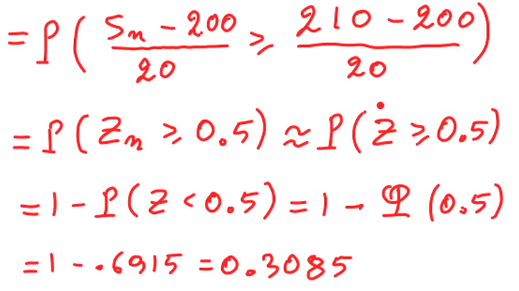 = P( (Sₙ - 200)/20 ≥ (210 - 200)/20 )
= P(Zₙ ≥ 0.5) ≈ P(Ż ≥ 0.5)
= 1 - P(Z < 0.5) = 1 - Φ(0.5)
= 1 - .6915 = 0.3085